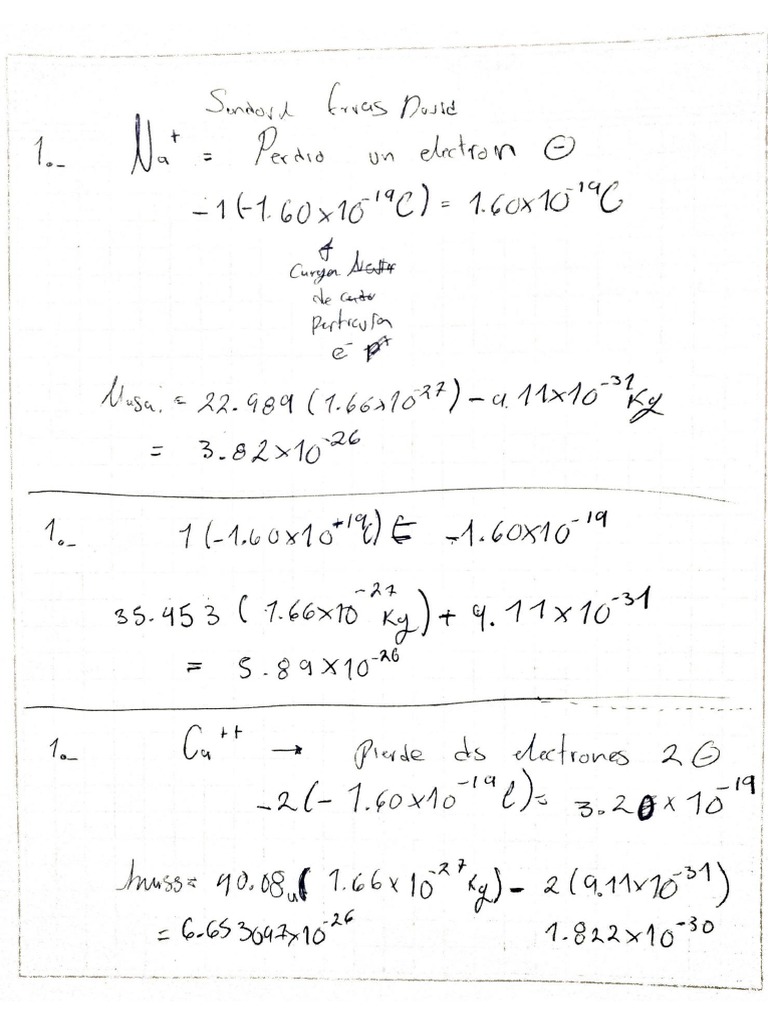 1.- Na⁺ = Perdio un electron ⊖
-1(-1.60×10⁻¹⁹C) = 1.60×10⁻¹⁹C
de
particula
e⁻
Masa = 22.989 (1.66×10⁻²⁷) - 9.11×10⁻³¹ Kg
= 3.82×10⁻²⁶
1.- 1(-1.60×10⁺¹⁹C) = -1.60×10⁻¹⁹
35.453 (1.66×10⁻²⁷ Kg) + 9.11×10⁻³¹
= 5.89×10⁻²⁶
1.- Ca⁺⁺ → Pierde ds electrones 2⊖
-2(-1.60×10⁻¹⁹C) = 3.20×10⁻¹⁹
mass = 40.08u (1.66×10⁻²⁷ Kg) - 2(9.11×10⁻³¹)
= 6.653097×10⁻²⁶ 1.822×10⁻³⁰